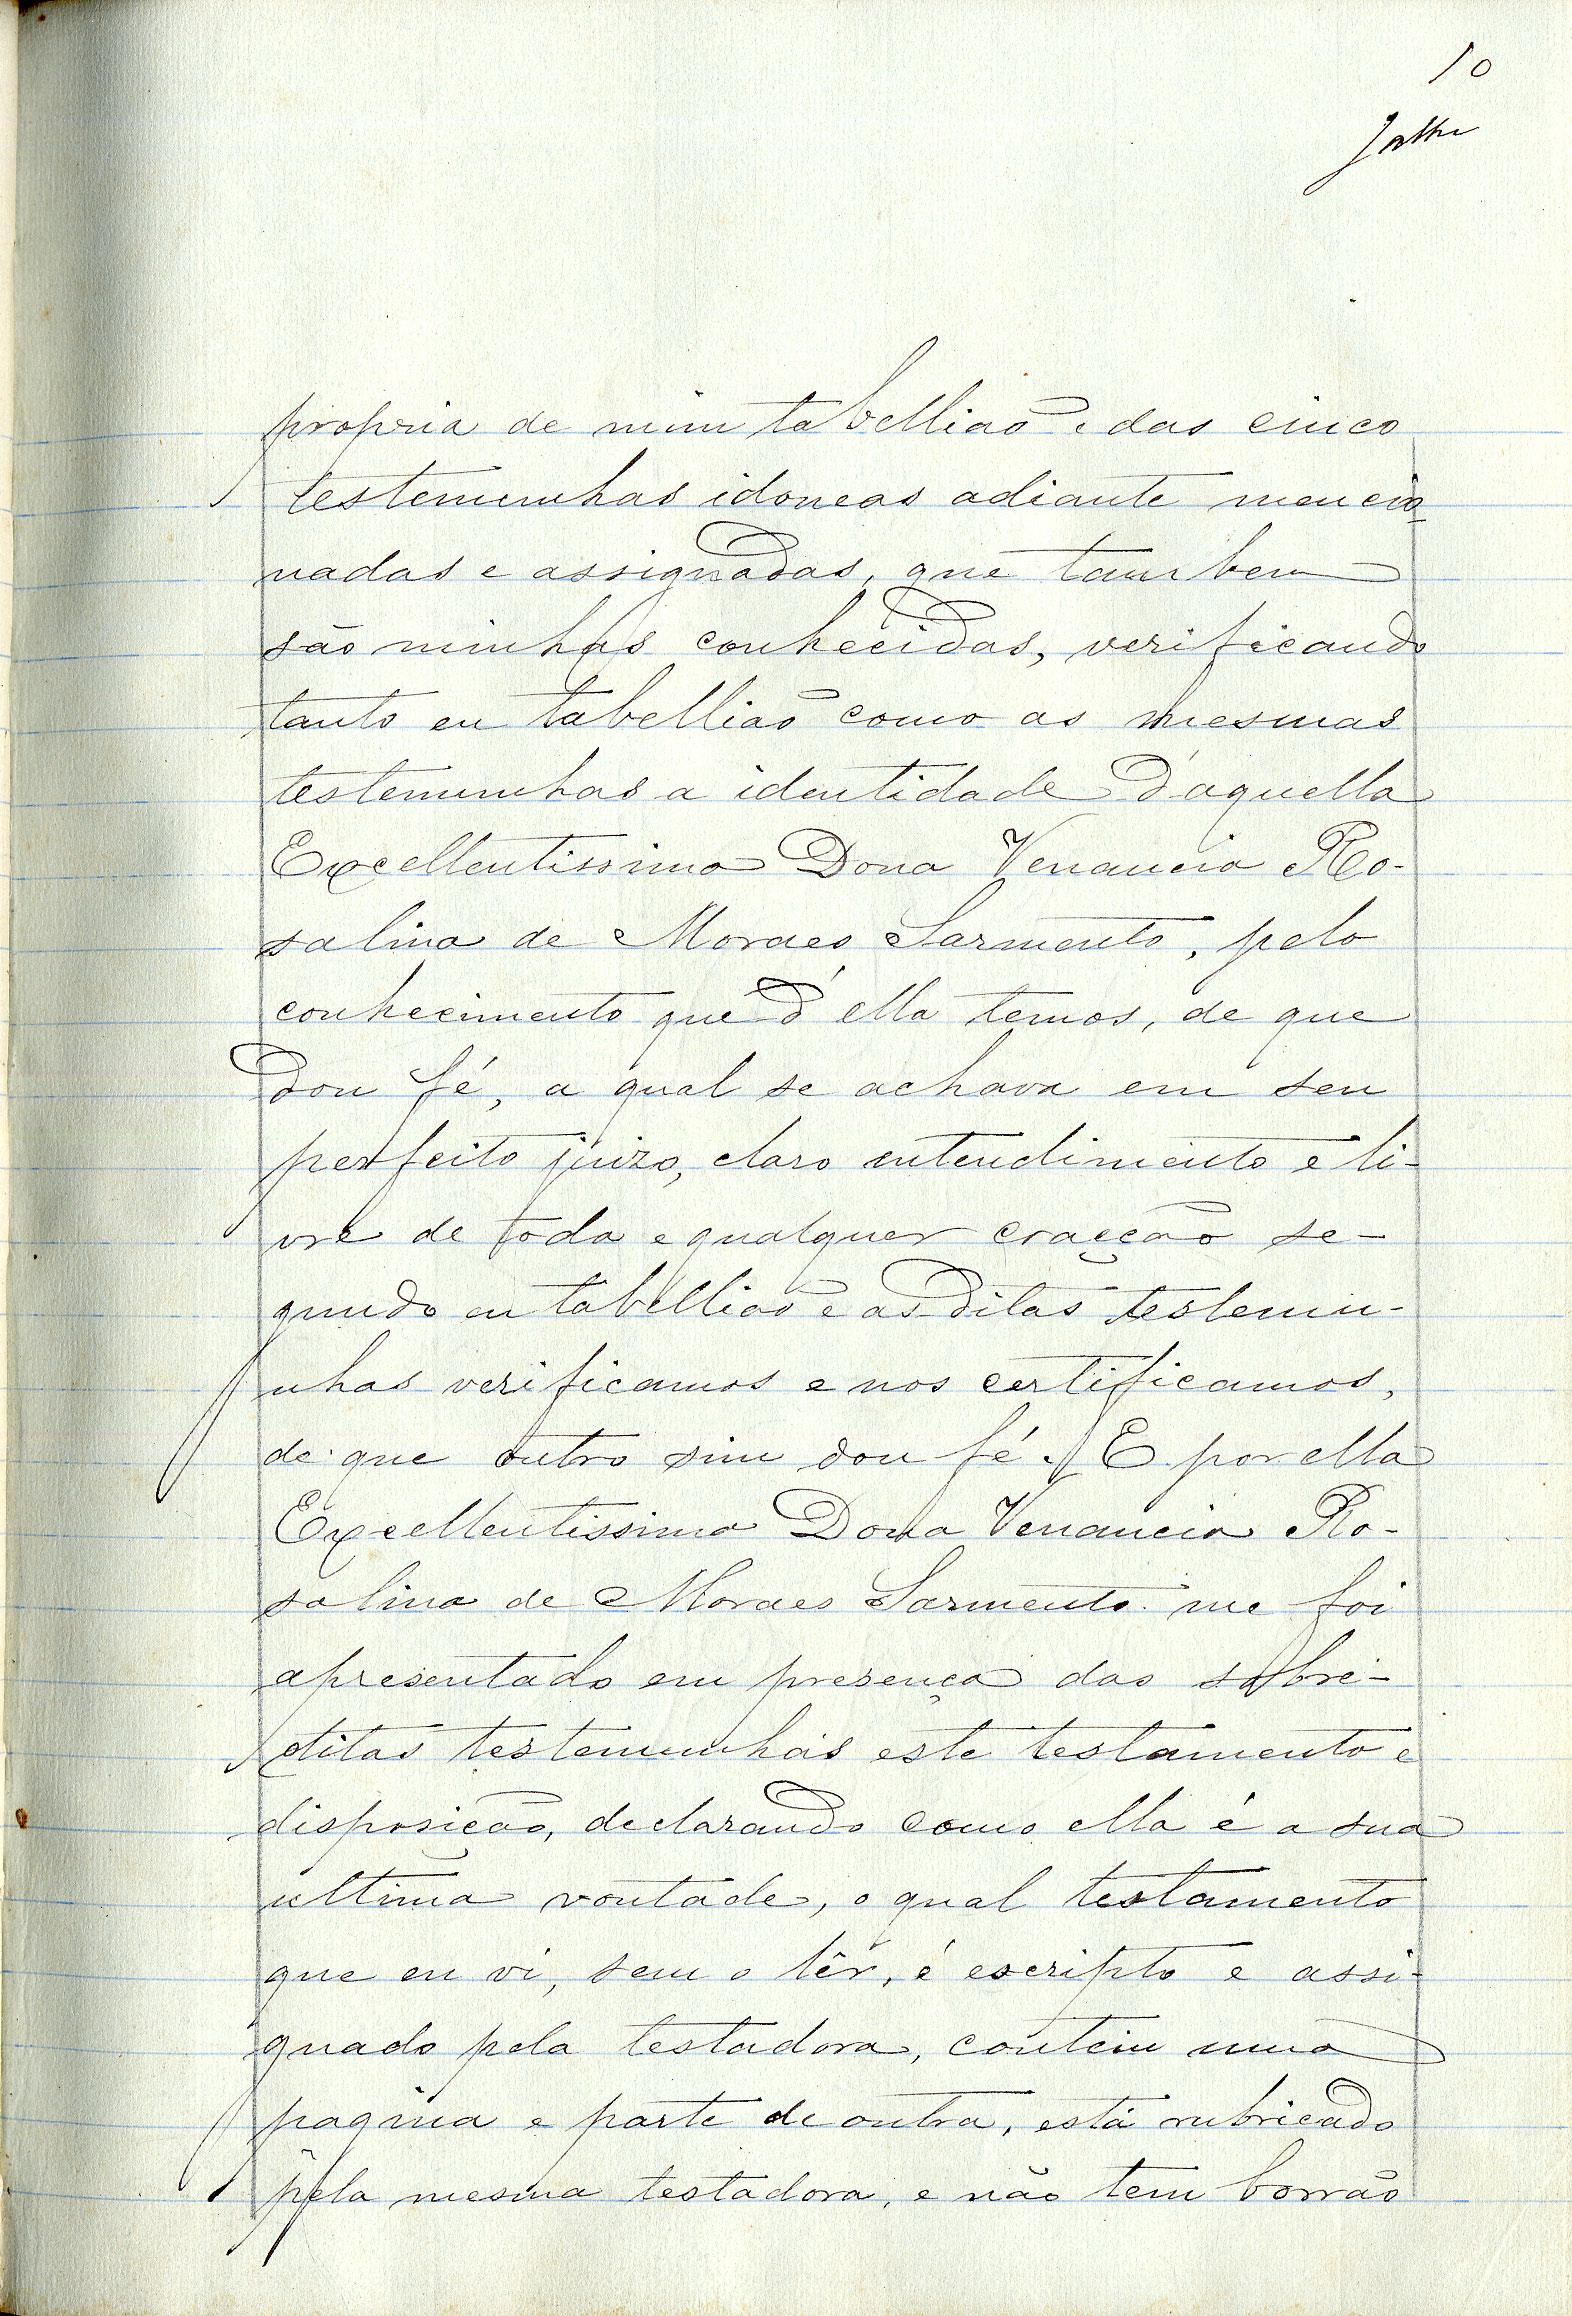 10
propria de mim tabellião e das cinco
testemunhas idoneas adiante mencio
nadas e assignadas, que tambem
são minhas conhecidas, verificando
tanto eu tabellião como as mesmas
testemunhas a identidade d'aquella
Excellentissima Dona Venancia Ro-
salina de Moraes Sarmento, pelo
conhecimento que d'ella temos, de que
dou fé, a qual se achava em seu
perfeito juizo, claro entendimento e li-
vre de toda e qualquer coacção se-
gundo eu tabellião e as ditas testemu-
nhas verificamos e nos certificamos,
de que outro sim dou fé. E por ella
Excellentissima Dona Venancia Ro-
salina de Moraes Sarmento me foi
apresentado em presença das sobre-
ditas testemunhas este testamento e
disposição, declarando como ella é a sua
ultima vontade, o qual testamento
que eu vi, sem o lêr, é escripto e assi-
gnado pela testadora, contem uma
pagina e parte de outra, está rubricado
pela mesma testadora, e não tem borrão